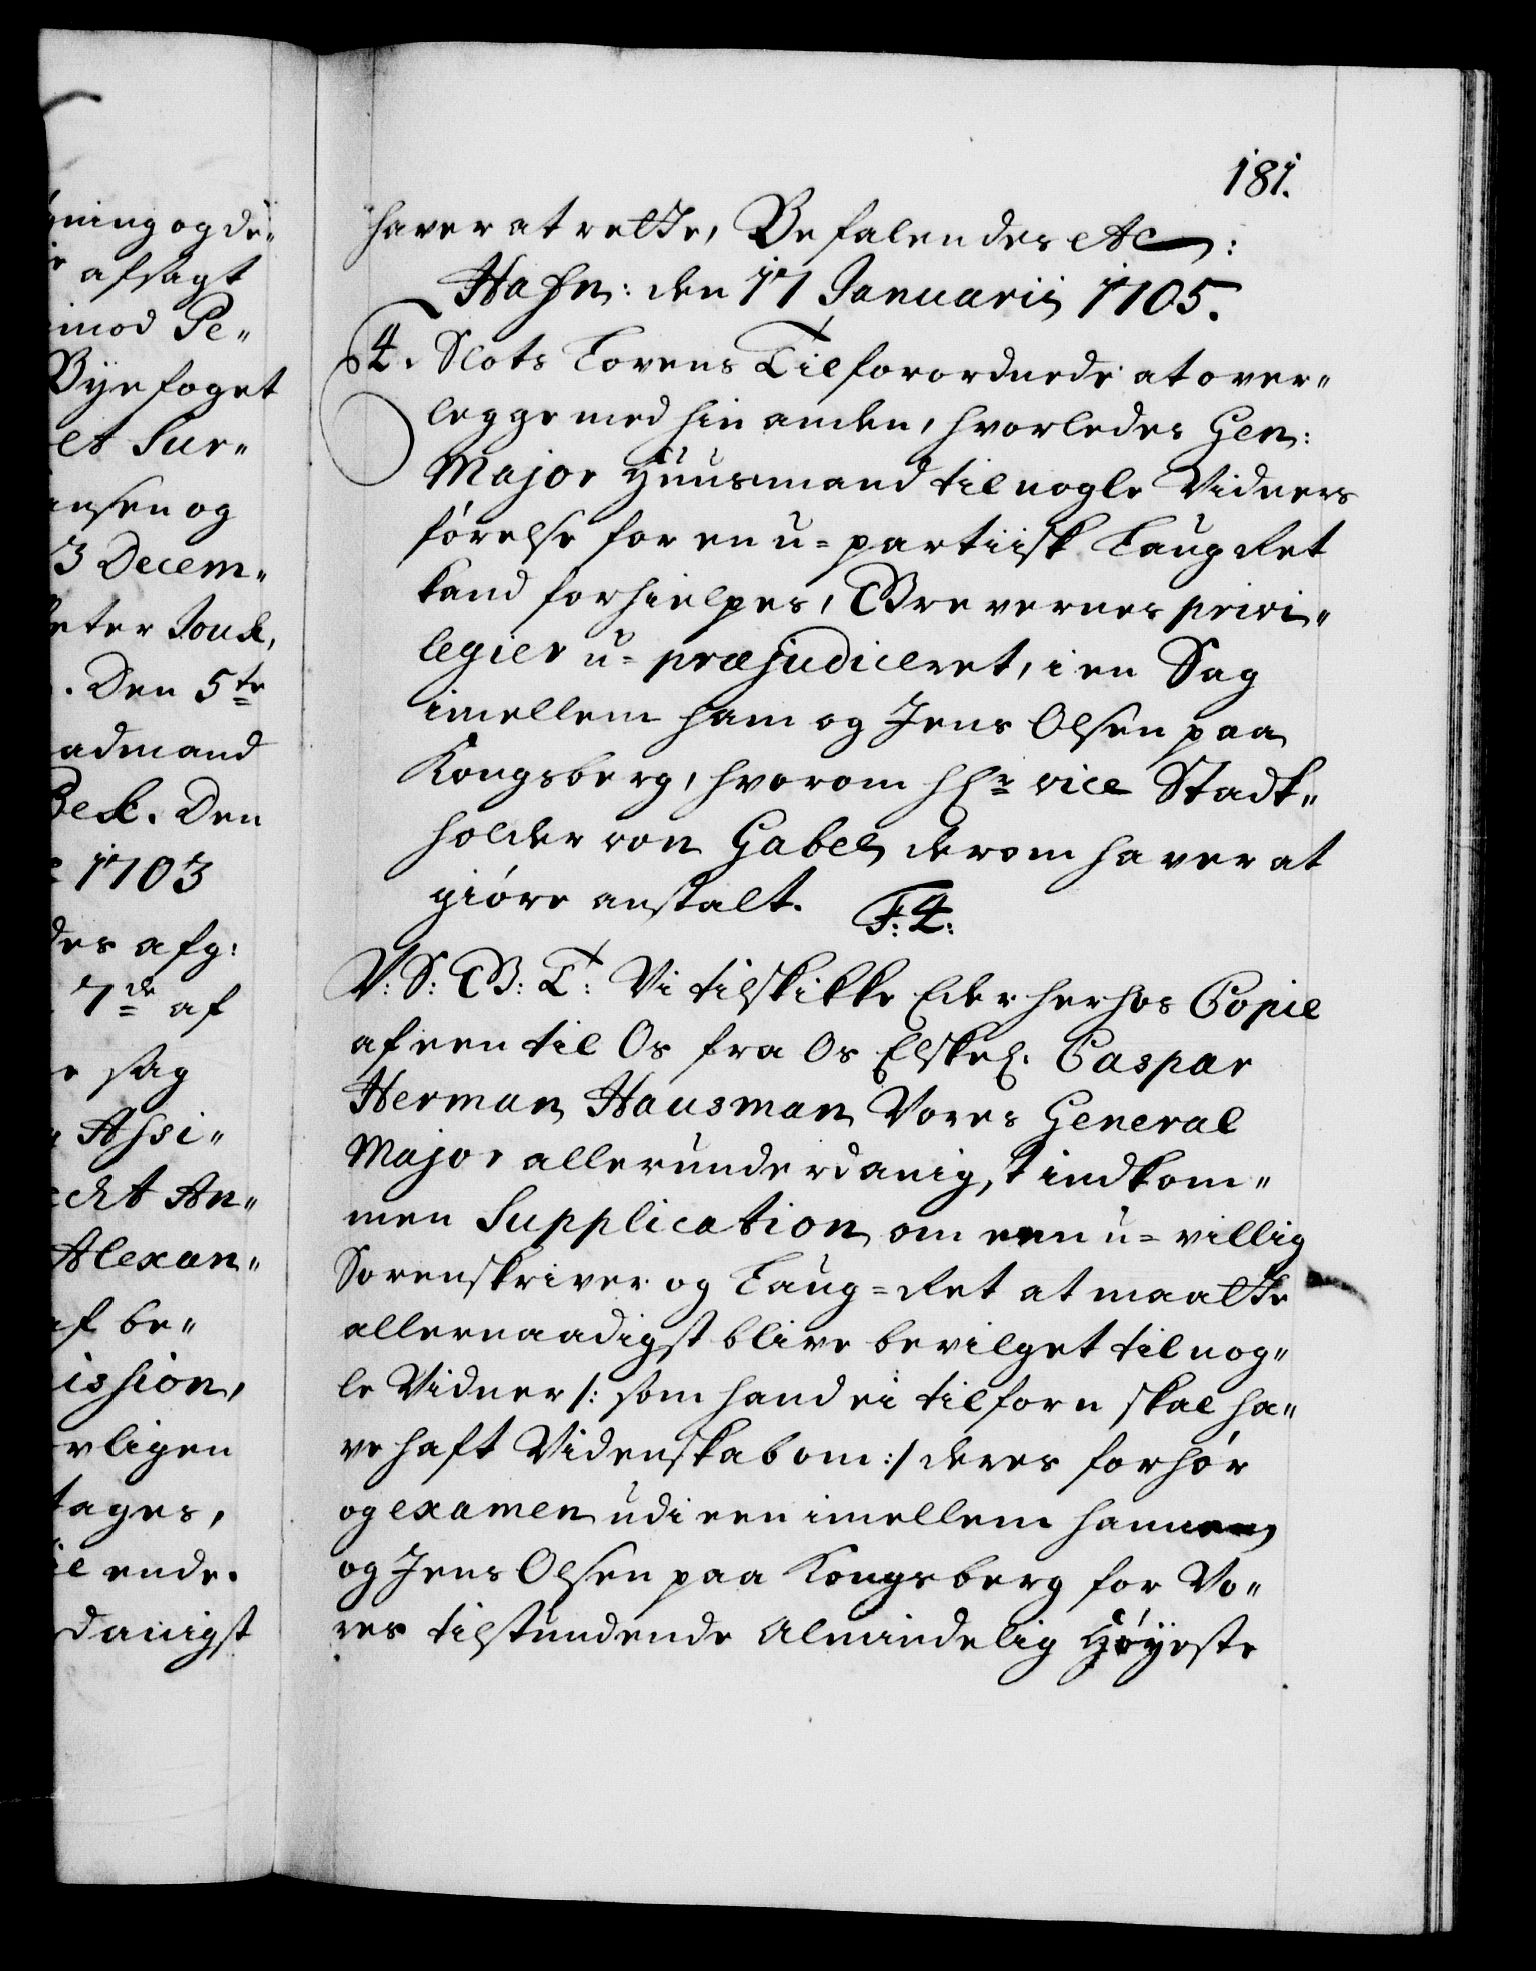 181.
haver at rette, Befalendes etc:
Hafn: den 17 Januarii 1705.
4. Slots Lovens Tilforordnede at over„
legge med hin anden, hvorledes Gen:
Major Huusmand til nogle Vidners
førelse for en u= partiisk Laug Ret
kand forhielpes, Grevernes privi„
legier u= præjudiceret, i en Sag
imellem ham og Jens Olsen paa
Kongsberg, hvorom Hr vice Stadt„
holder von Gabel derom haver at
giöre anstalt. F: 4:
V: S: G: T: Vi tilskikke Eder herhos Copie
af een til Os fra Os Elskel. Caspar
Herman Hausman Vores General
Major allerunderdanigst indkom„
men Supplication om een u= villig
Sorenskriver og Laug= Ret at maatte
allernaadigst blive bevilget til nog„
le Vidner /: som hand ei tilforn skal ha„
ve haft Videnskab om :/ deres forhør
og examen udi een imellem hannem
og Jens Olsen paa Kongsberg for Vo„
res tilstundende Almindelig Høyeste
ning og de„
afsagt
imod Pe„
Byefoget
et Sur„
ensen og
3 Decem„
eter Jouk,
. Den 5te
admand
Bek. Den
1703
des afg:
7de af
sag
Assi„
echt An„
Alexan„
af be„
ission,
rligen
tages,
il ende.
danigst